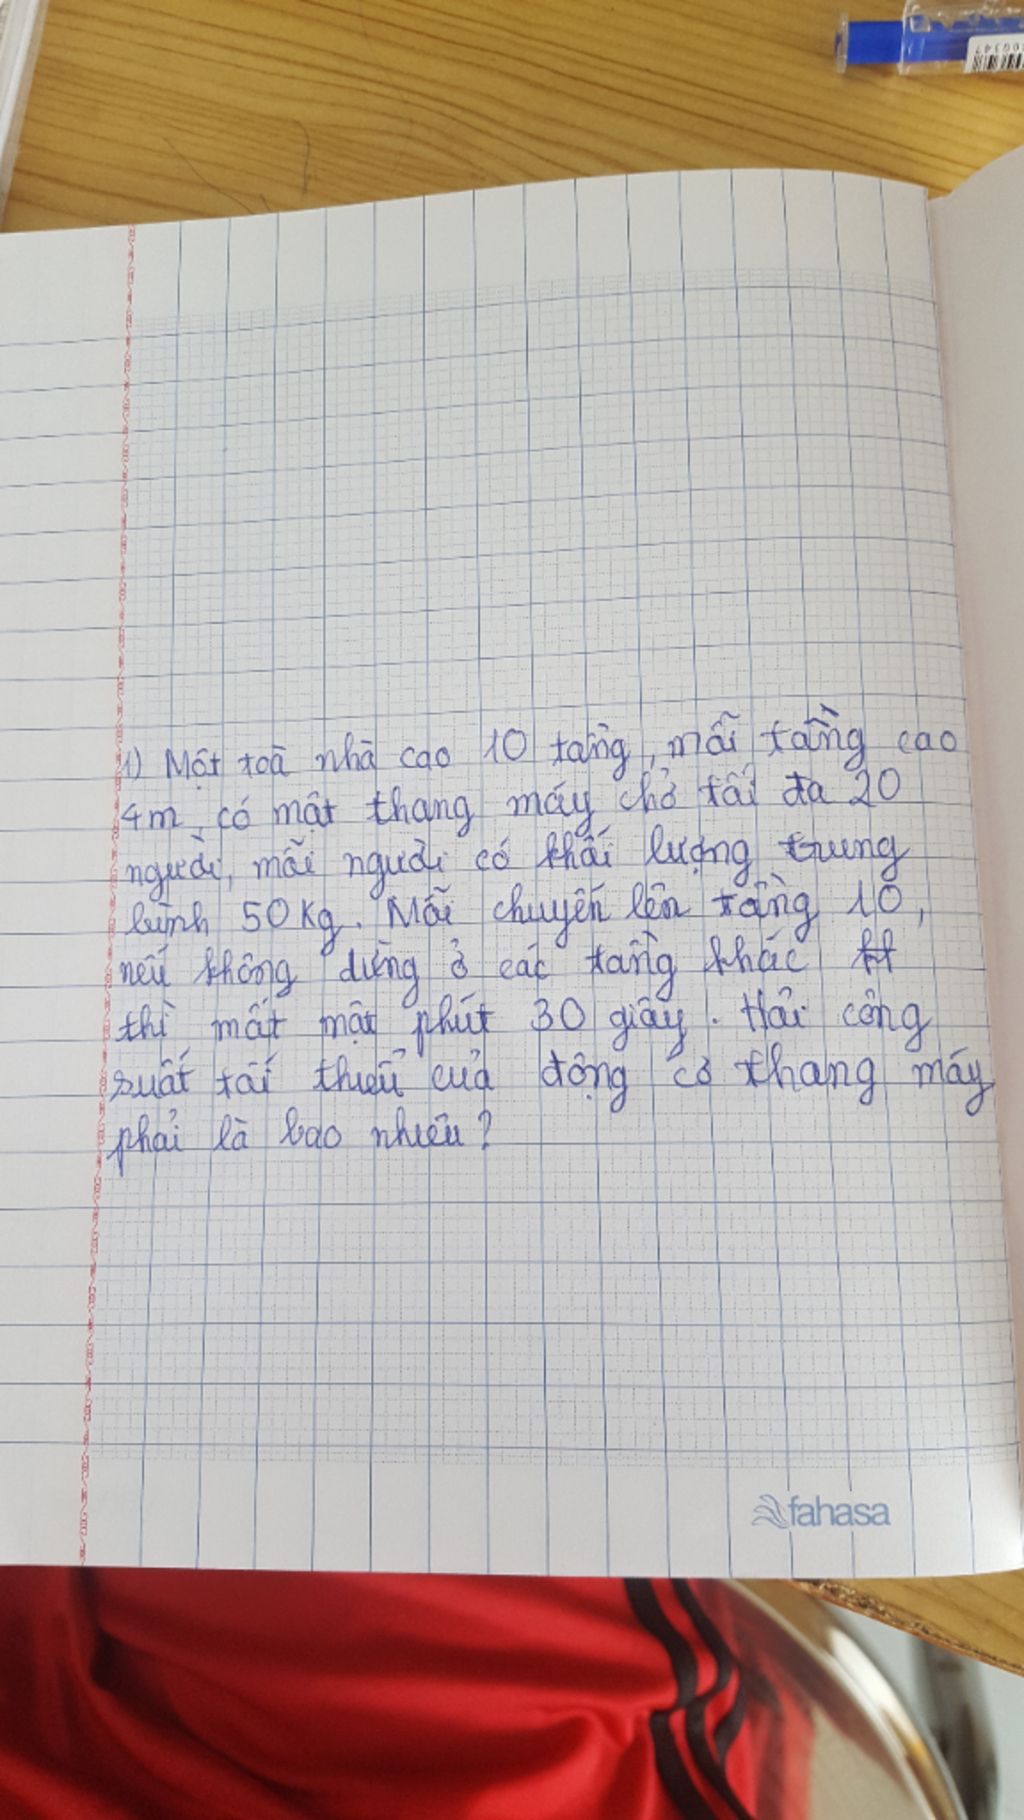 1) Một toà nhà cao 10 tầng, mỗi tầng cao
4m, có một thang máy chở tối đa 20
người, mỗi người có khối lượng trung
bình 50Kg. Mỗi chuyến lên tầng 10,
nếu không dừng ở các tầng khác
thì mất một phút 30 giây. Hỏi công
suất tối thiểu của động cơ thang máy
phải là bao nhiêu?
fahasa